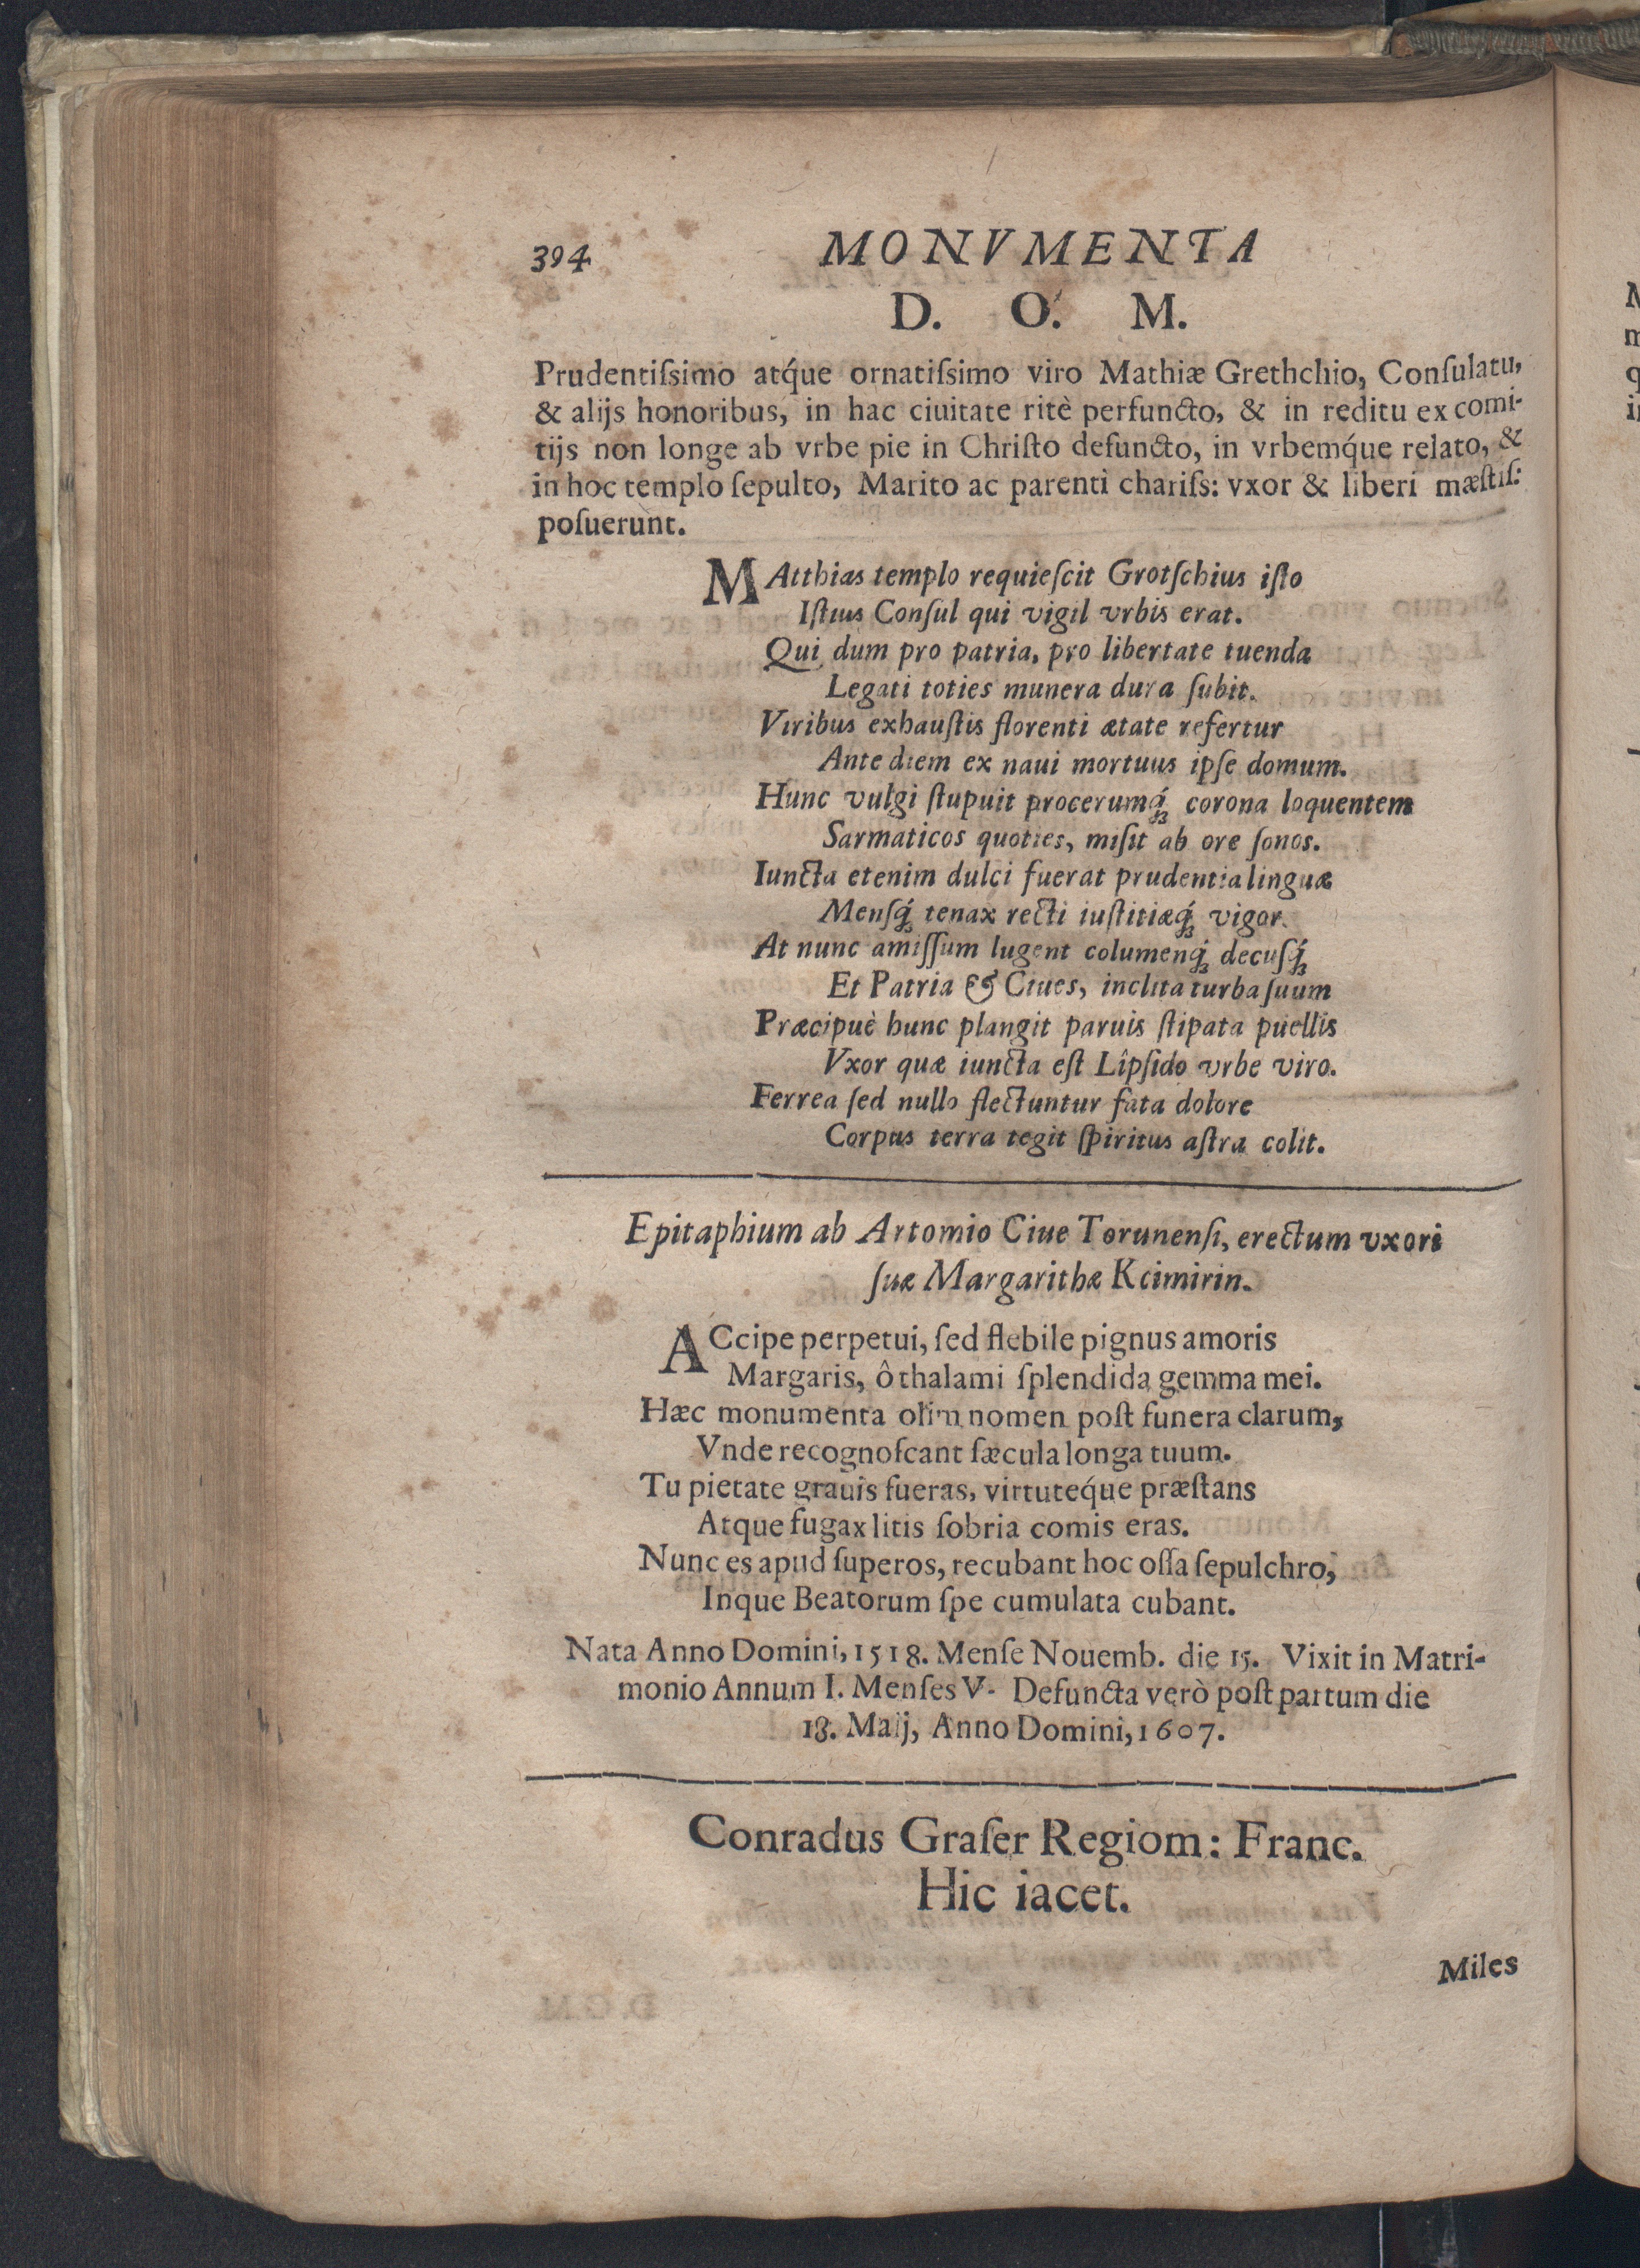 394 MONVMENTA
D. O. M.
Prudentiſsimo atq́ue ornatiſsimo viro Mathiæ Grethchio, Conſulatu,
& alijs honoribus, in hac ciuitate ritè perfuncto, & in reditu ex comi-
tijs non longe ab vrbe pie in Chriſto defuncto, in vrbemq́ue relato, &
in hoc templo ſepulto, Marito ac parenti chariſs: vxor & liberi mæſtiſ:
poſuerunt.
MAtthias templo requieſcit Grotſchius iſto
Iſtius Conſul qui vigil vrbis erat.
Qui dum pro patria, pro libertate tuenda
Legati toties munera dura ſubit.
Viribus exhauſtis florenti ætate refertur
Ante diem ex naui mortuus ipſe domum.
Hunc vulgi ſtupuit procerumq́ꝫ corona loquentem
Sarmaticos quoties, miſit ab ore ſonos.
Iuncta etenim dulci fuerat prudentia linguæ
Menſq́ꝫ tenax recti iuſtitiæq́ꝫ vigor.
At nunc amiſſum lugent columenq́ꝫ decuſq́ꝫ
Et Patria & Ciues, inclita turba ſuum
Præcipuè hunc plangit paruis ſtipata puellis
Vxor quæ iuncta eſt Lîpſido vrbe viro.
Ferrea ſed nullo flectuntur fata dolore
Corpus terra tegit ſpiritus aſtra colit.
Epitaphium ab Artomio Ciue Torunenſi, erectum vxori
ſuæ Margarithæ Kcimirin.
ACcipe perpetui, ſed flebile pignus amoris
Margaris, ô thalami ſplendida gemma mei.
Hæc monumenta olim nomen poſt funera clarum,
Vnde recognoſcant ſæcula longa tuum.
Tu pietate grauis fueras, virtuteq́ue præſtans
Atque fugax litis ſobria comis eras.
Nunc es apud ſuperos, recubant hoc oſſa ſepulchro,
Inque Beatorum ſpe cumulata cubant.
Nata Anno Domini, 1518. Menſe Nouemb. die 15. Vixit in Matri-
monio Annum I. Menſes V. Defuncta verò poſt partum die
18. Maij, Anno Domini, 1607.
Conradus Graſer Regiom: Franc.
Hic iacet.
Miles